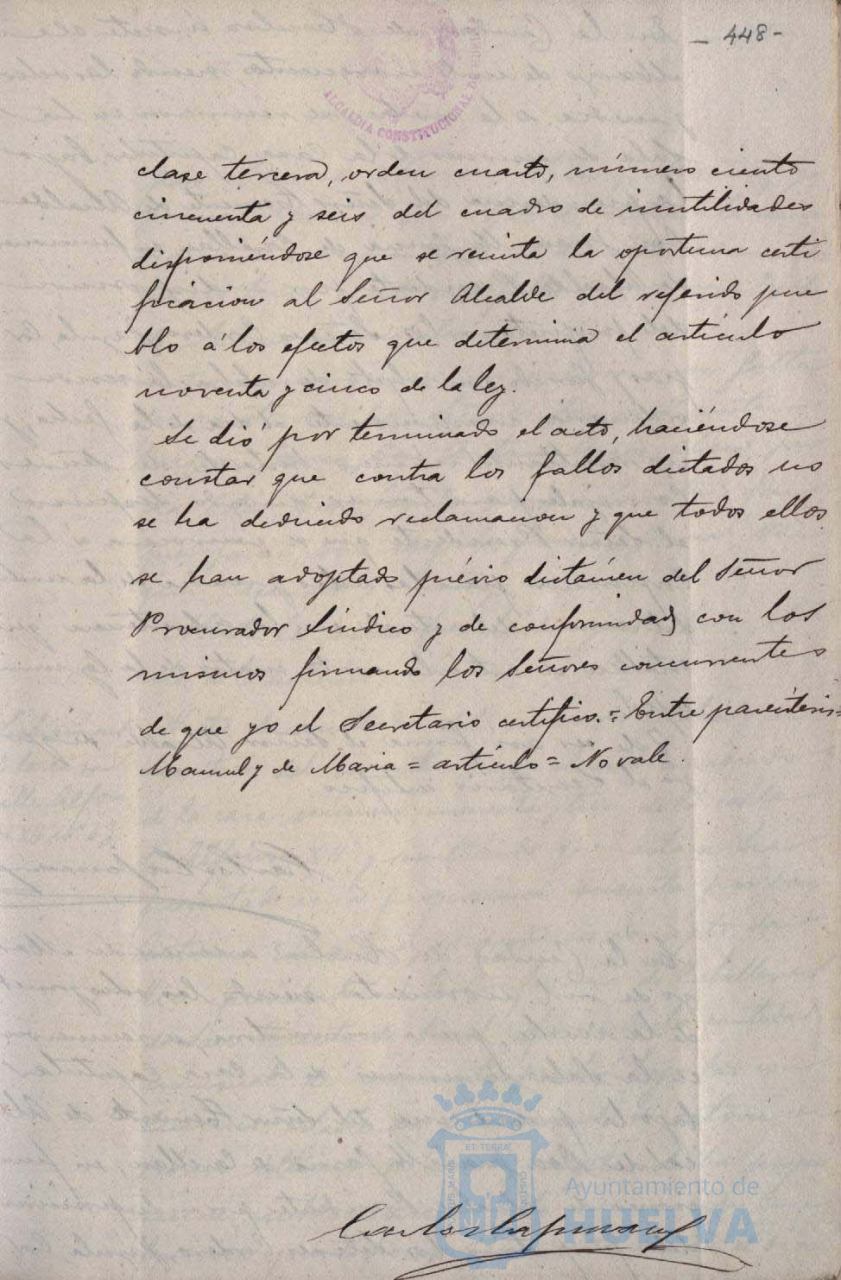 - 448 -
ALCALDIA CONSTITUCIONAL DE
clase tercera, orden cuarto, número ciento
cincuenta y seis del cuadro de inutilidades
disponiéndose que se remita la oportuna certi
ficacion al Señor Alcalde del referido pue
blo á los efectos que determina el artículo
noventa y cinco de la ley.
Se dió por terminado el acto, haciéndose
constar que contra los fallos dictados no
se ha deducido reclamacion y que todos ellos
se han adoptado prévio dictámen del Señor
Procurador Síndico y de conformidad con los
mismos firmando los Señores concurrentes
de que yo el Secretario certifico. = Entre paréntesis =
Manuel y de Maria = artículo = No vale.
ET TERRAE
Ayuntamiento de
HUELVA
Carlos